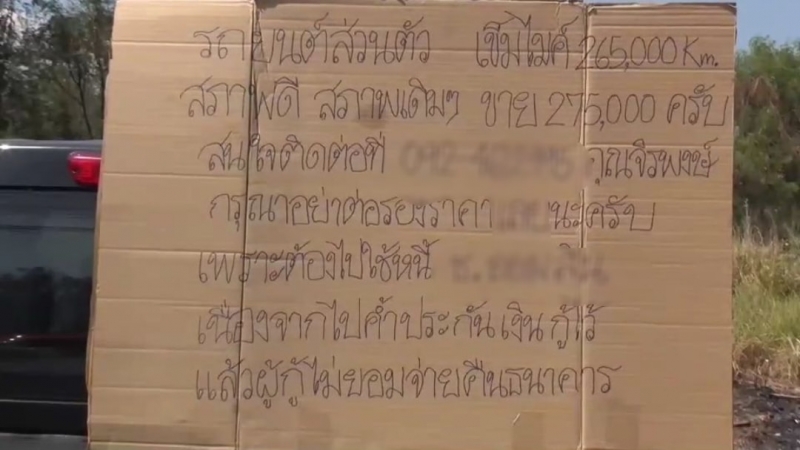 รถยนต์ส่วนตัว เข็มไมค์ 265,000 Km.
สภาพดี สภาพเดิมๆ ขาย 275,000 ครับ
สนใจติดต่อที่ คุณจิรพงษ์
กรุณาอย่าต่อรองราคา นะครับ
เพราะต้องไปใช้หนี้
เนื่องจากไปค้ำประกัน เงินกู้ไว้
แล้วผู้กู้ไม่ยอมจ่ายคืนธนาคาร